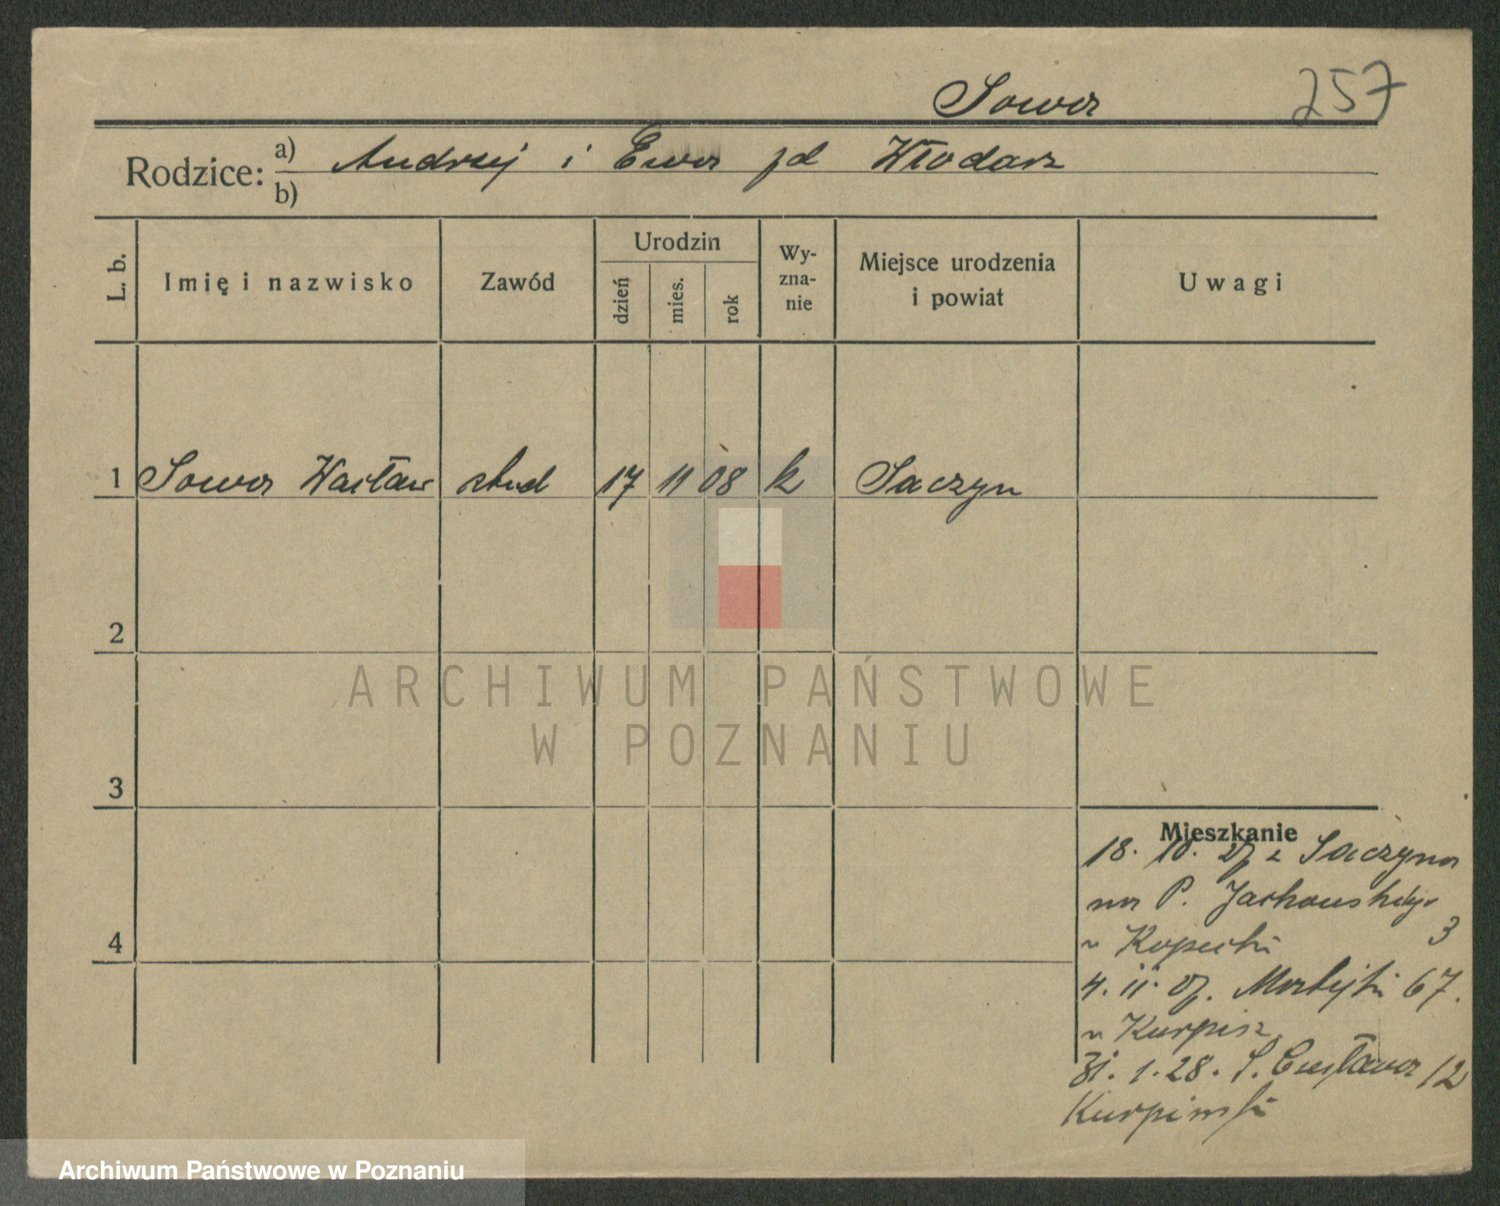 Sowa 257
Rodzice: a) Andrzej i Ewa zd Włodarz
b)
L. b. Imię i nazwisko Zawód Urodzin dzień mies. rok Wy-zna-nie Miejsce urodzenia i powiat Uwagi
1 Sowa Wacław stud 17 11 08 k Saczyn
2
ARCHIWUM PAŃSTWOWE
W POZNANIU
3
Mieszkanie
18. 10. 27 z Saczyna
na P.
3
4
4. 11. 27. 67.
u Kurpisz
31. 1. 28. 12
Archiwum Państwowe w Poznaniu